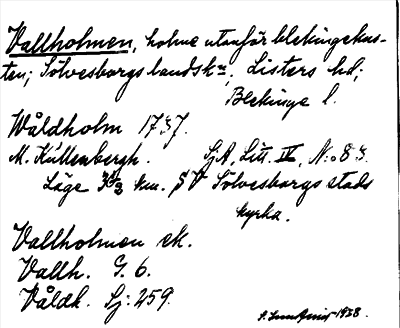 Vallholmen, holme utanför blekingekus-
ten; Sölvesborgs landskn, Listers hd;
Blekinge l.
Wåldholm 1737.
M. Kullenbergh. SjA, Litt. IV, N:o 83.
Läge 3½ km. SV Sölvesborgs stads
kyrka.
Vallholmen ek.
Vallh. G. 6.
Våldh. Sj: 259.
S. 1928.